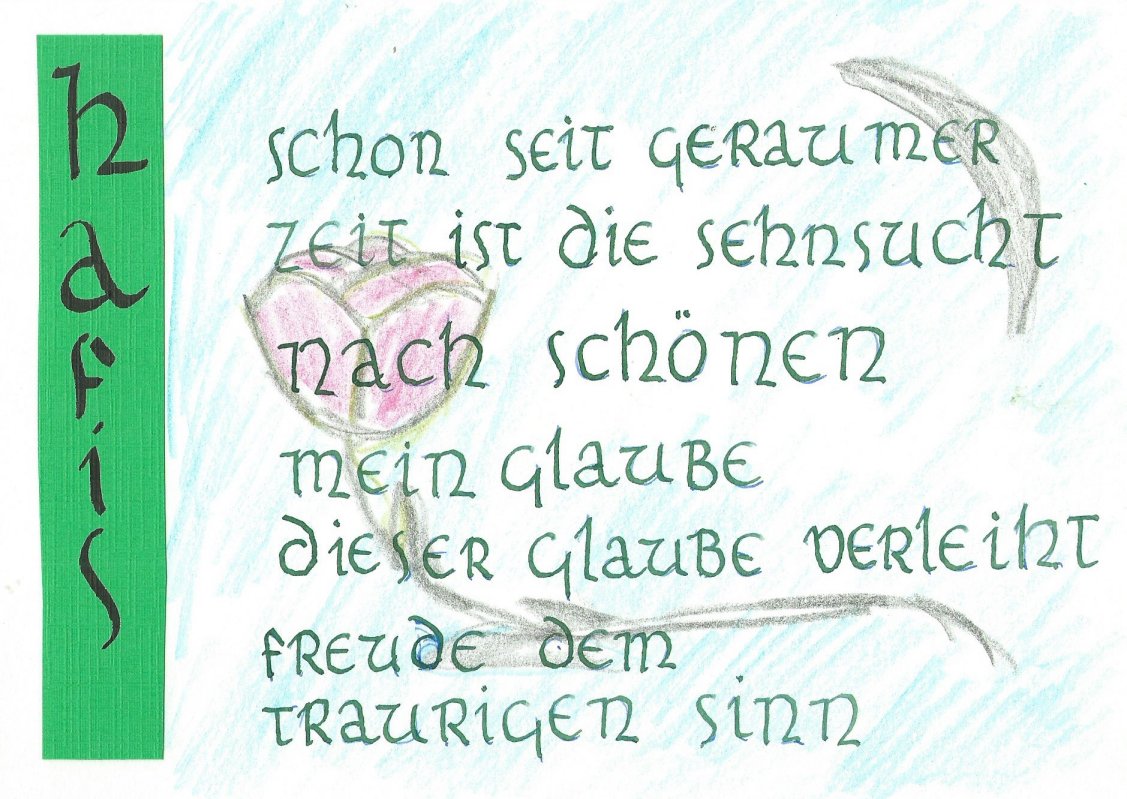 hafis
schon seit geraumer
zeit ist die sehnsucht
nach schönen
mein glaube
dieser glaube verleiht
freude dem
traurigen sinn